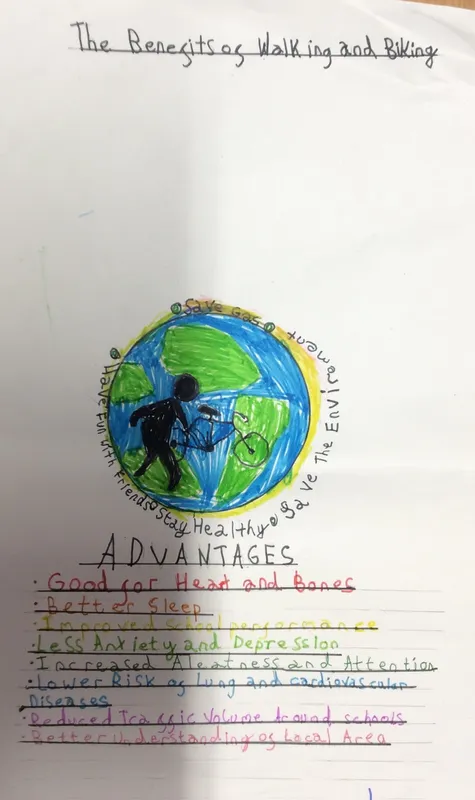 The Benefits of Walking and Biking
Save Gas
Save The Enviroment
Stay Healthy
Have Fun With Friends
ADVANTAGES
· Good for Heart and Bones
· Better Sleep
· Improved school performance
Less Anxiety and Depression
· Increased Aleatness and Attention
· Lower Risk of Lung and cardiovascular
Diseases
· Reduced Traffic Volume Around schools
· Better Understanding of Local Area